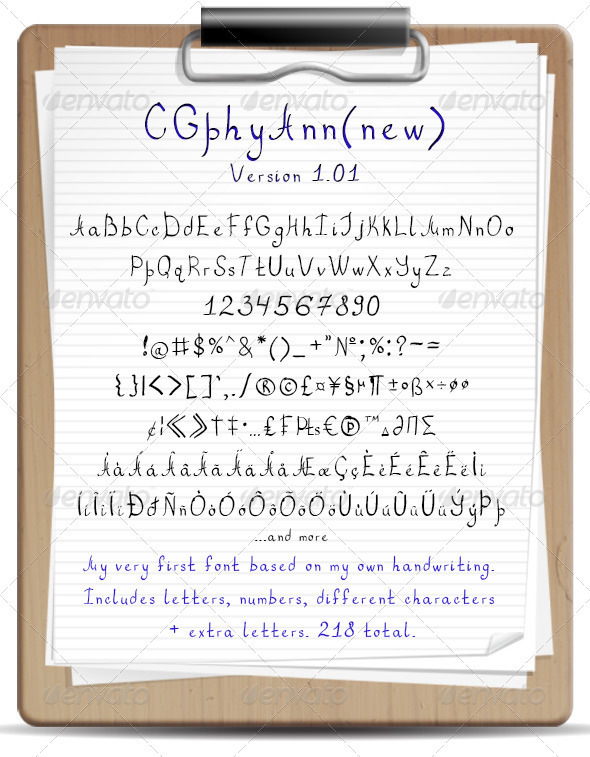 CGphyAnn(new)
Version 1.01
AaBbCcDdEeFfGgHhIiJjKkLlMmNnOo
PpQqRrSsTtUuVvWwXxYyZz
1234567890
!@#$%^&*()_+"№;%:?-=
{}|<>[]',./®©£¤¥§µ¶±°ß×÷øø
¢¦《》†‡•…₤₣₧€℗™▵∂∏∑
ÀàÁáÂâÃãÄäÅåÆæÇçÈèÉéÊêËëÌì
ÍíÎîÏïÐđÑñÒòÓóÔôÕõÖöÙùÚúÛûÜüÝýÞþ
...and more
My very first font based on my own handwriting.
Includes letters, numbers, different characters
+ extra letters. 218 total.
envato